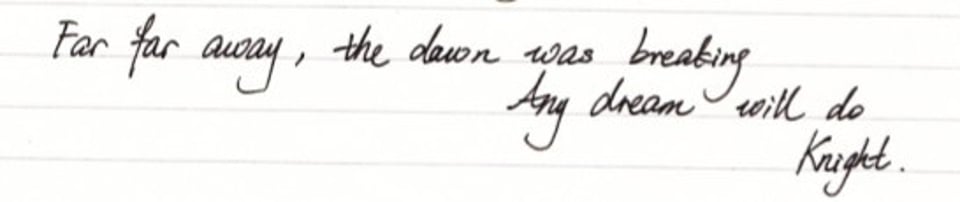 Far far away, the dawn was breaking
Any dream will do
Knight.